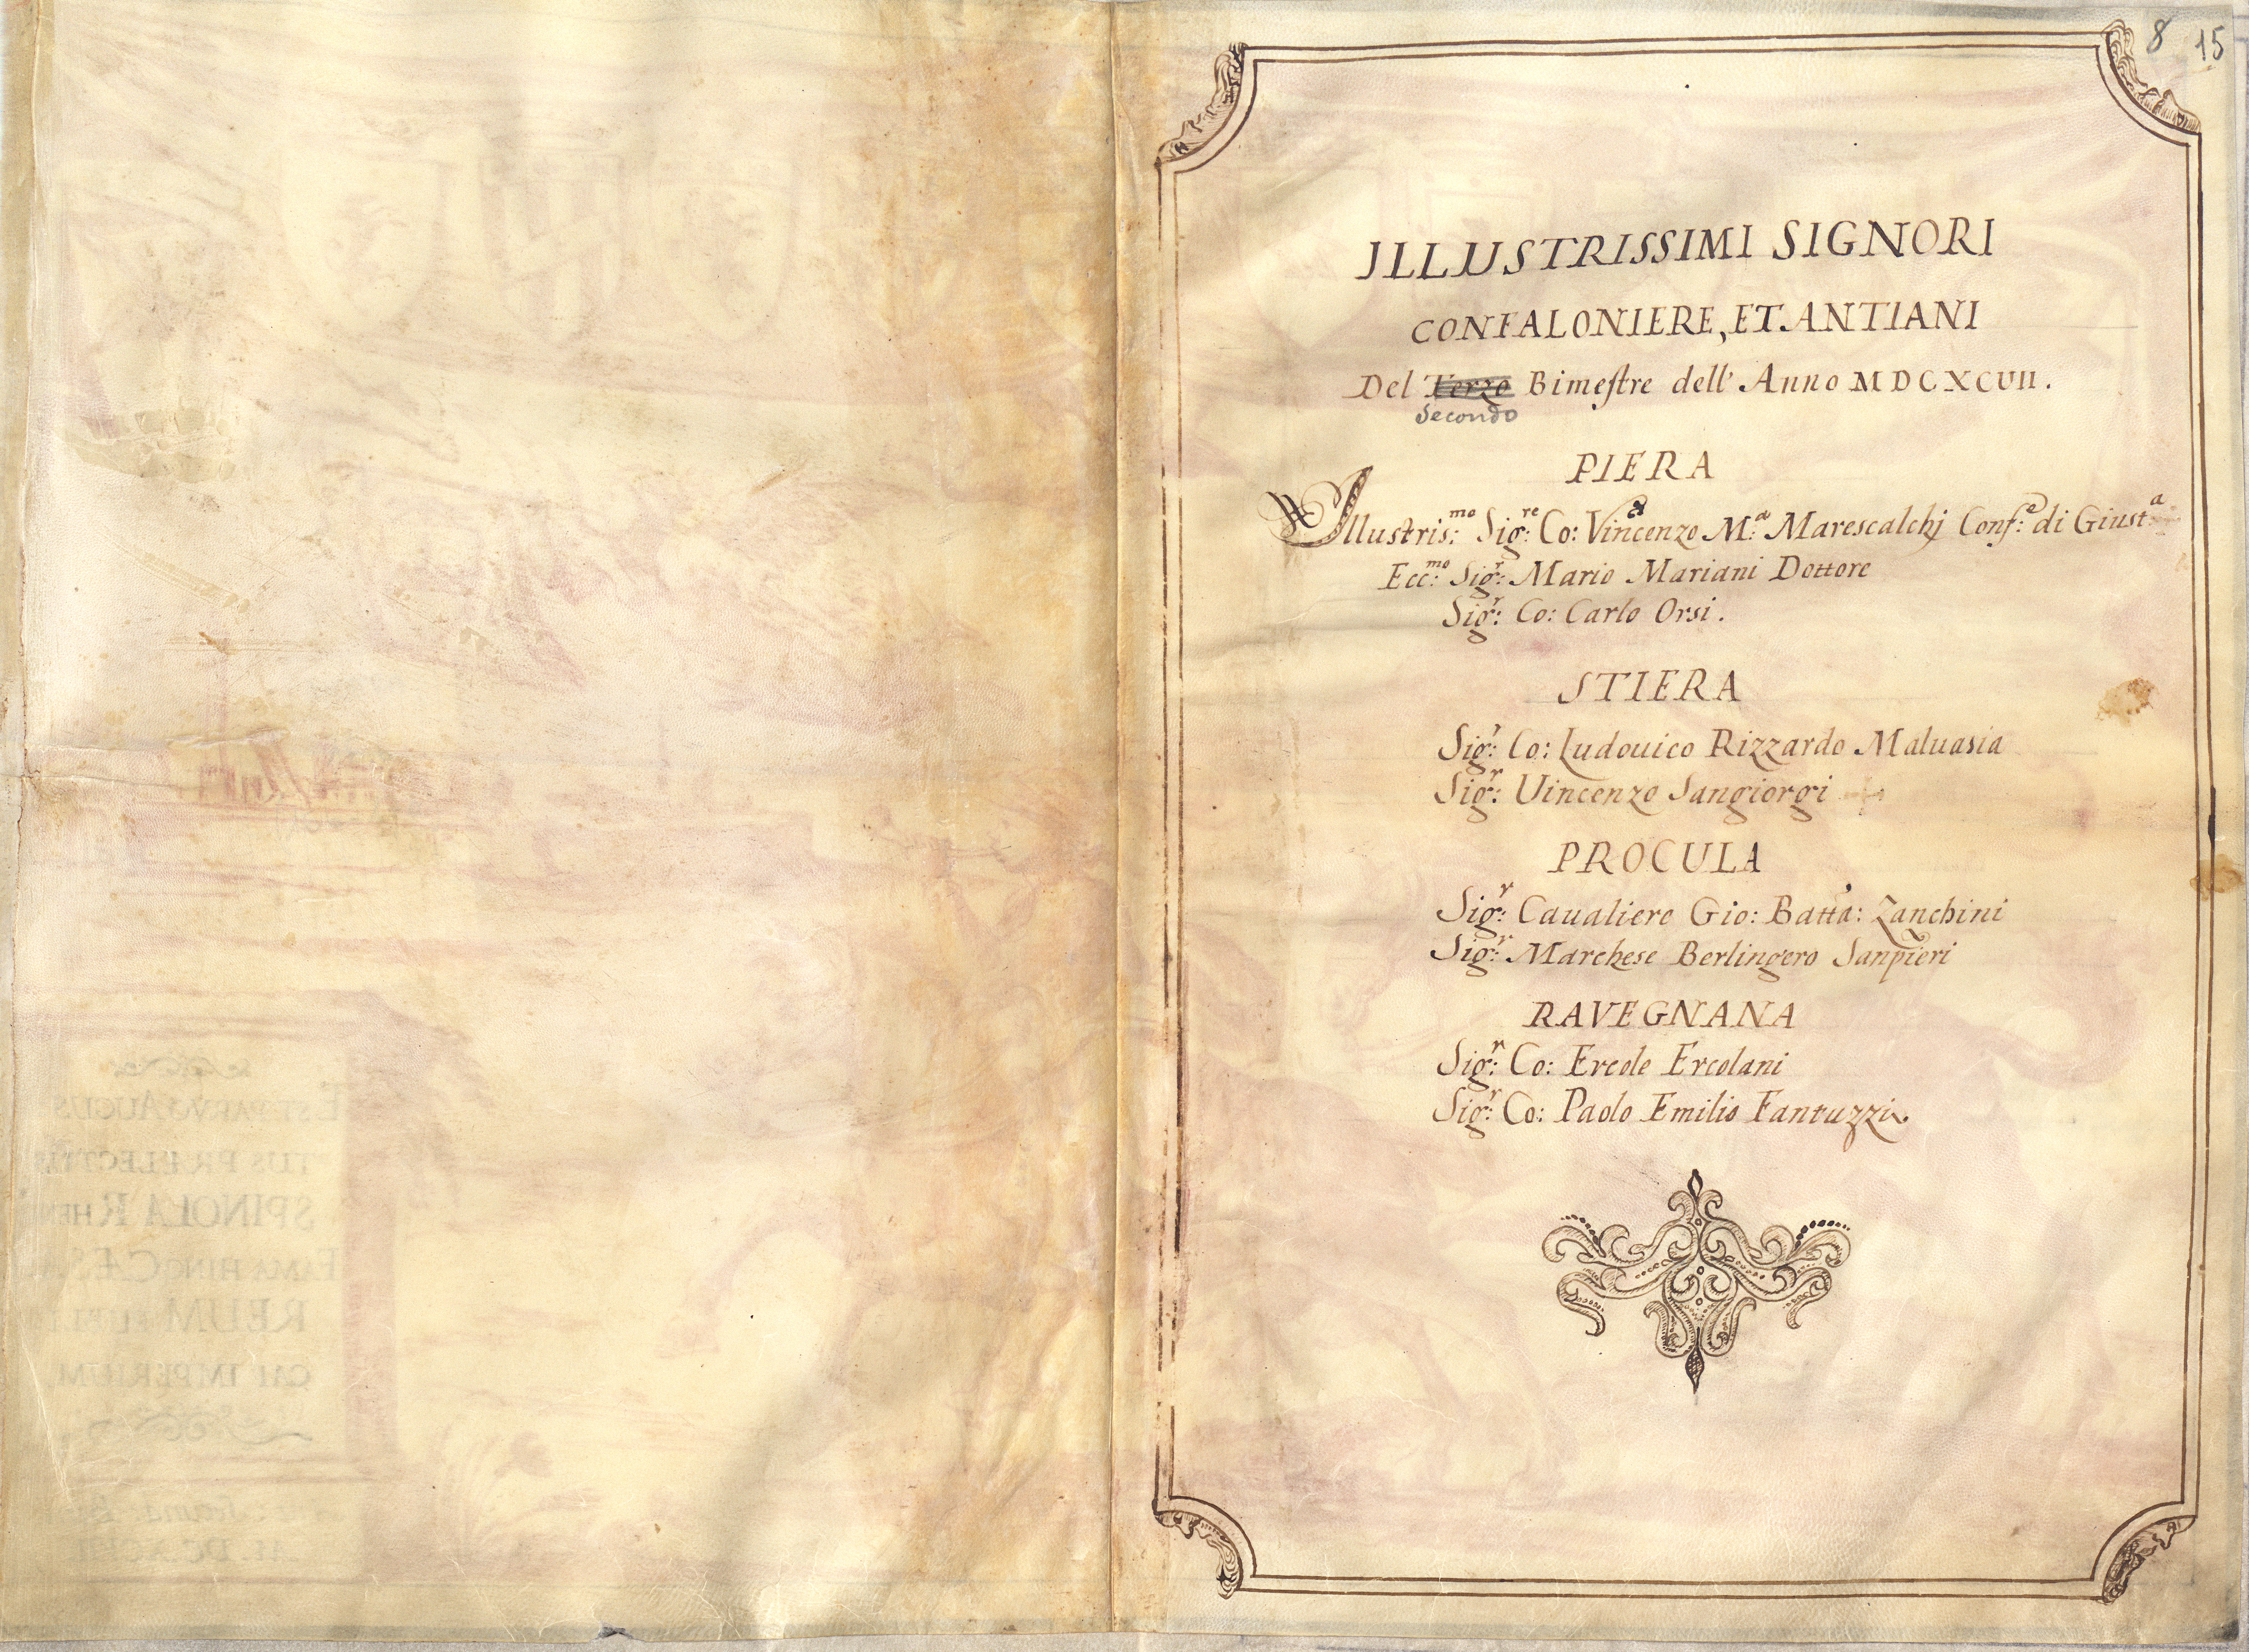 8 15
ILLUSTRISSIMI SIGNORI
CONFALONIERE, ET.ANTIANI
Del Terzo Bimestre dell' Anno MDCXCVII.
Secondo
PIERA
Illustris:mo Sig:re Co: Vincenzo M:a Marescalchj Conf:e di Giust:a
Ecc:mo Sig:r Mario Mariani Dottore
Sig:r Co: Carlo Orsi.
STIERA
Sig:r Co: Ludouico Rizzardo Maluasia
Sig:r Uincenzo Sangiorgi
PROCULA
Sig:r Caualiere Gio: Batta: Zanchini
Sig:r Marchese Berlingero Sanpieri
RAVEGNANA
Sig:r Co: Ercole Ercolani
Sig:r Co: Paolo Emilio Fantuzzi.